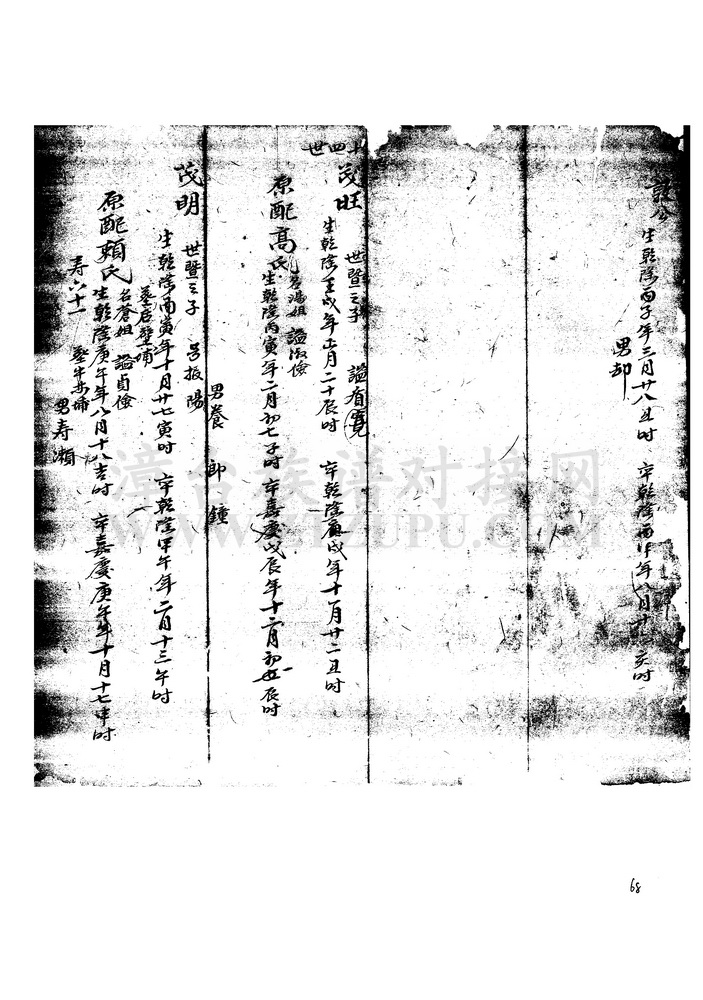 生乾隆丙子年三月廿八丑时 卒乾隆丙午年八月 亥时
男却
十四世
茂旺 世暨三子 謚有寬
生乾隆壬戌年正月二十辰时 卒乾隆庚戌年十一月廿二丑时
原配高氏 名湯姐 謚淑儉
生乾隆丙寅年二月初七子时 卒嘉慶戊辰年十二月初五辰时
男養 郎 鍾
茂明 世暨三子 号振陽
生乾隆丙寅年十月廿七寅时 卒乾隆甲午年二月十三午时
墓后壁埔
原配賴氏 名蒼姐 謚貞儉
生乾隆庚午年八月十八吉时 卒嘉慶庚午年十月十七申时
寿六十一
男寿瀬
漳台族谱对接网
WWW.ZTZUPU.COM
68